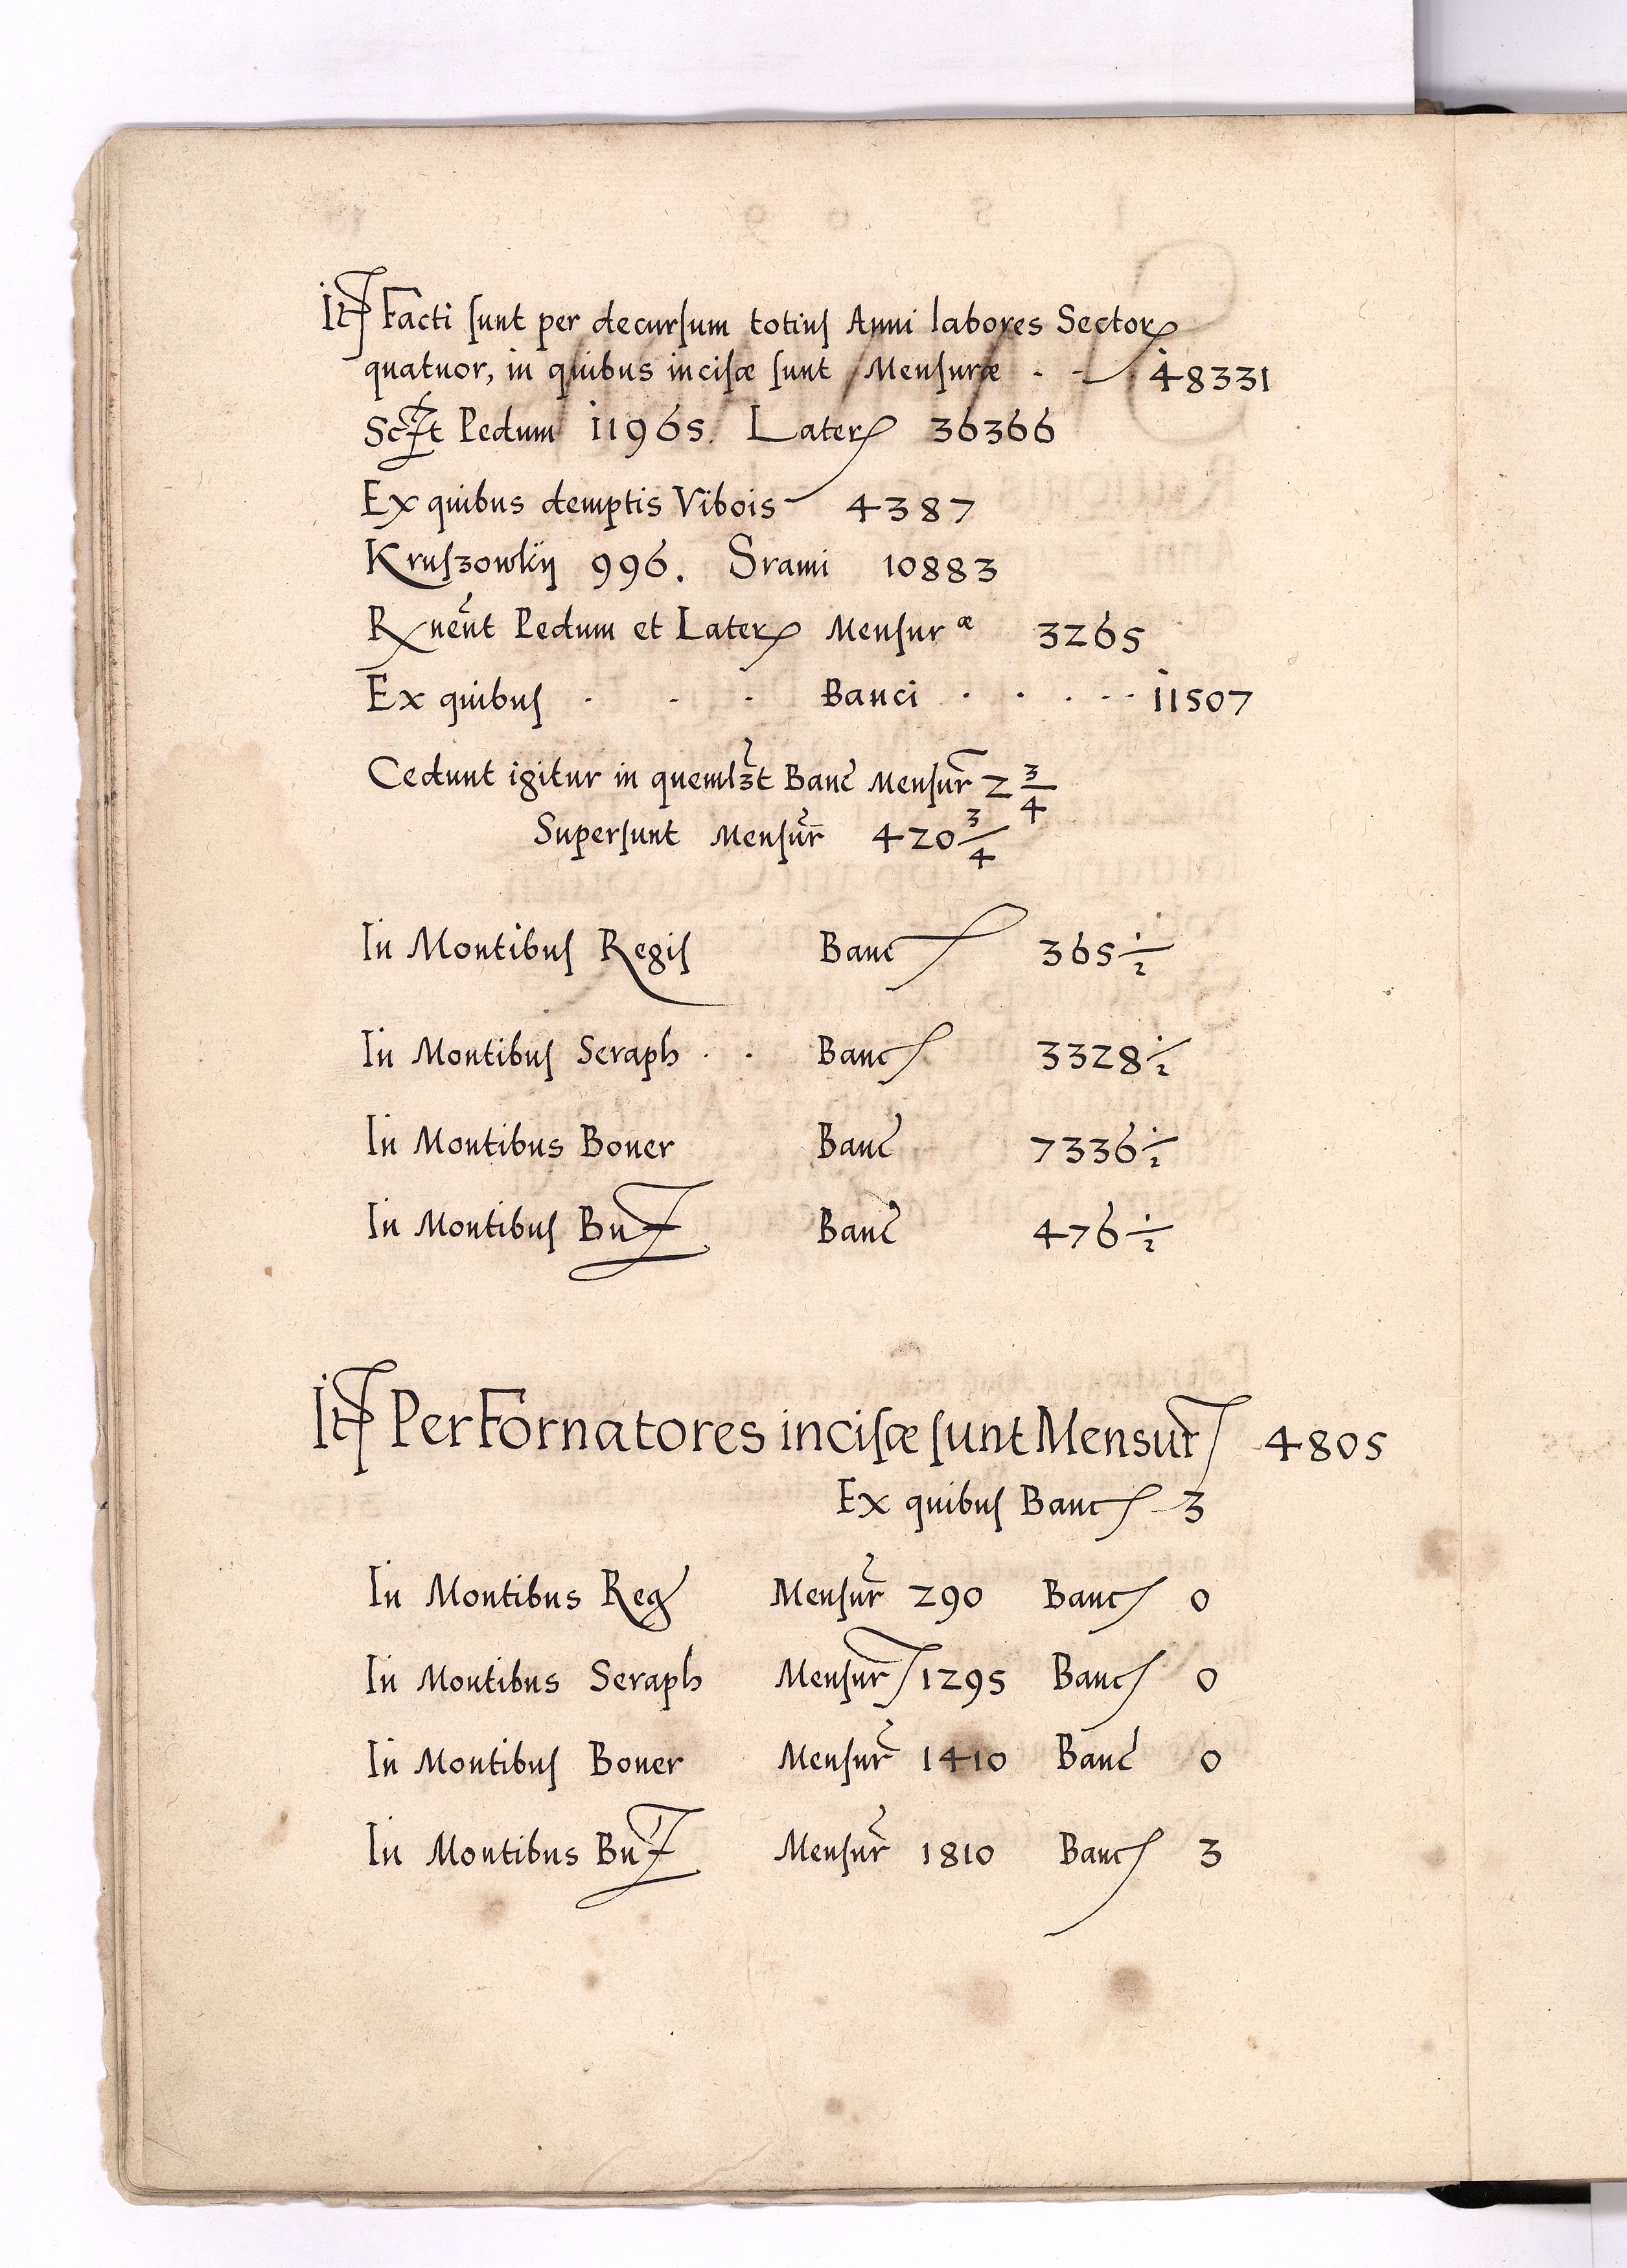 It Facti sunt per decursum totius Anni labores Sector
quatuor, in quibus incisæ sunt Mensuræ · - 48331
Sct Pedum 11965. Later 36366
Ex quibus demptis Vibois 4387
Kruszowkij 996. Srami 10883
Rnent Pedum et Later Mensuræ 3265
Ex quibus · - - Banci · · · - - 11507
Cedunt igitur in quemlzt Banc Mensur 2 3/4
Supersunt Mensur 420 3/4
In Montibus Regis Banc 365 1/2
In Montibus Seraph · · Banc 3328 1/2
In Montibus Boner Banc 7336 1/2
In Montibus Bu Banc 476 1/2
It Per Fornatores incisæ sunt Mensur 4805
Ex quibus Banc 3
In Montibus Reg Mensur 290 Banc 0
In Montibus Seraph Mensur 1295 Banc 0
In Montibus Boner Mensur 1410 Banc 0
In Montibus Bu Mensur 1810 Banc 3